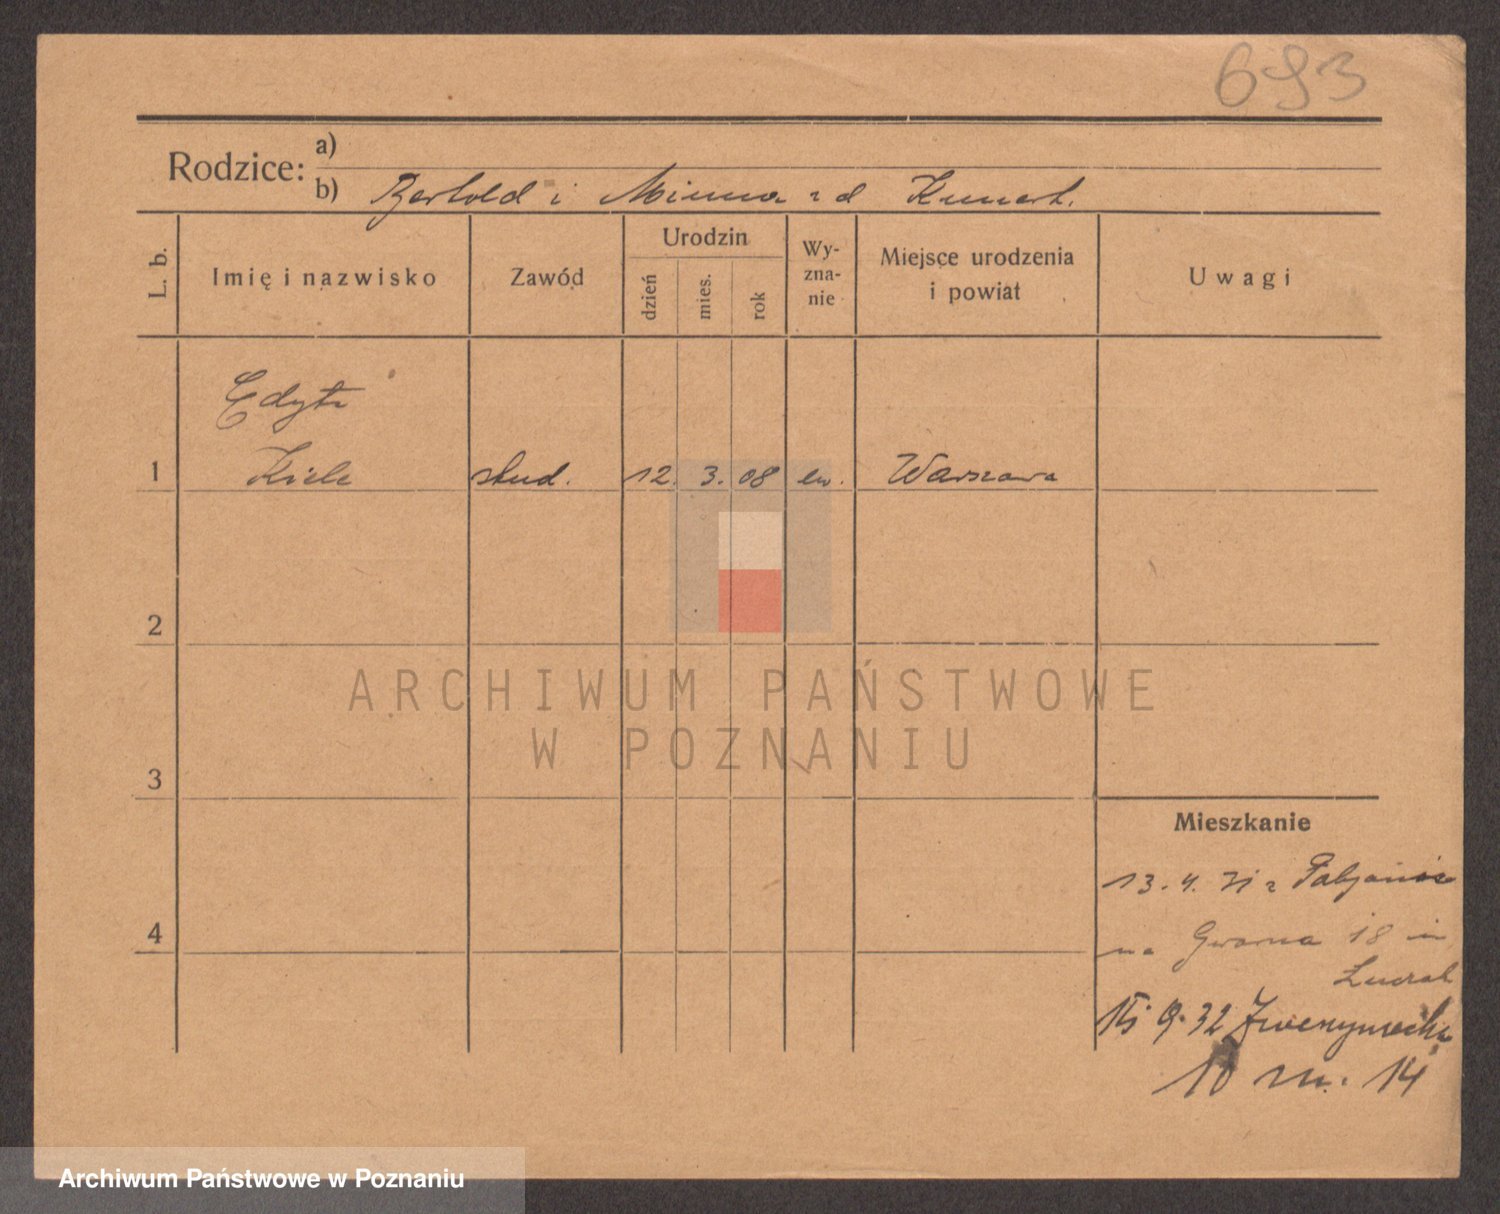 693
Rodzice:
a)
b) Bertold i Minna z d Kunert.
L. b.
Imię i nazwisko
Zawód
Urodzin
dzień
mies.
rok
Wy-
zna-
nie
Miejsce urodzenia
i powiat
Uwagi
Edyta
1 Kiele stud. 12. 3. 08 ew. Warszawa
2
3
4
ARCHIWUM PAŃSTWOWE
W POZNANIU
Mieszkanie
13. 4. 31 z Pabjanic
na Gwarna 18 m
15 9. 32 Zwierzyniecka
10 m. 14
Archiwum Państwowe w Poznaniu